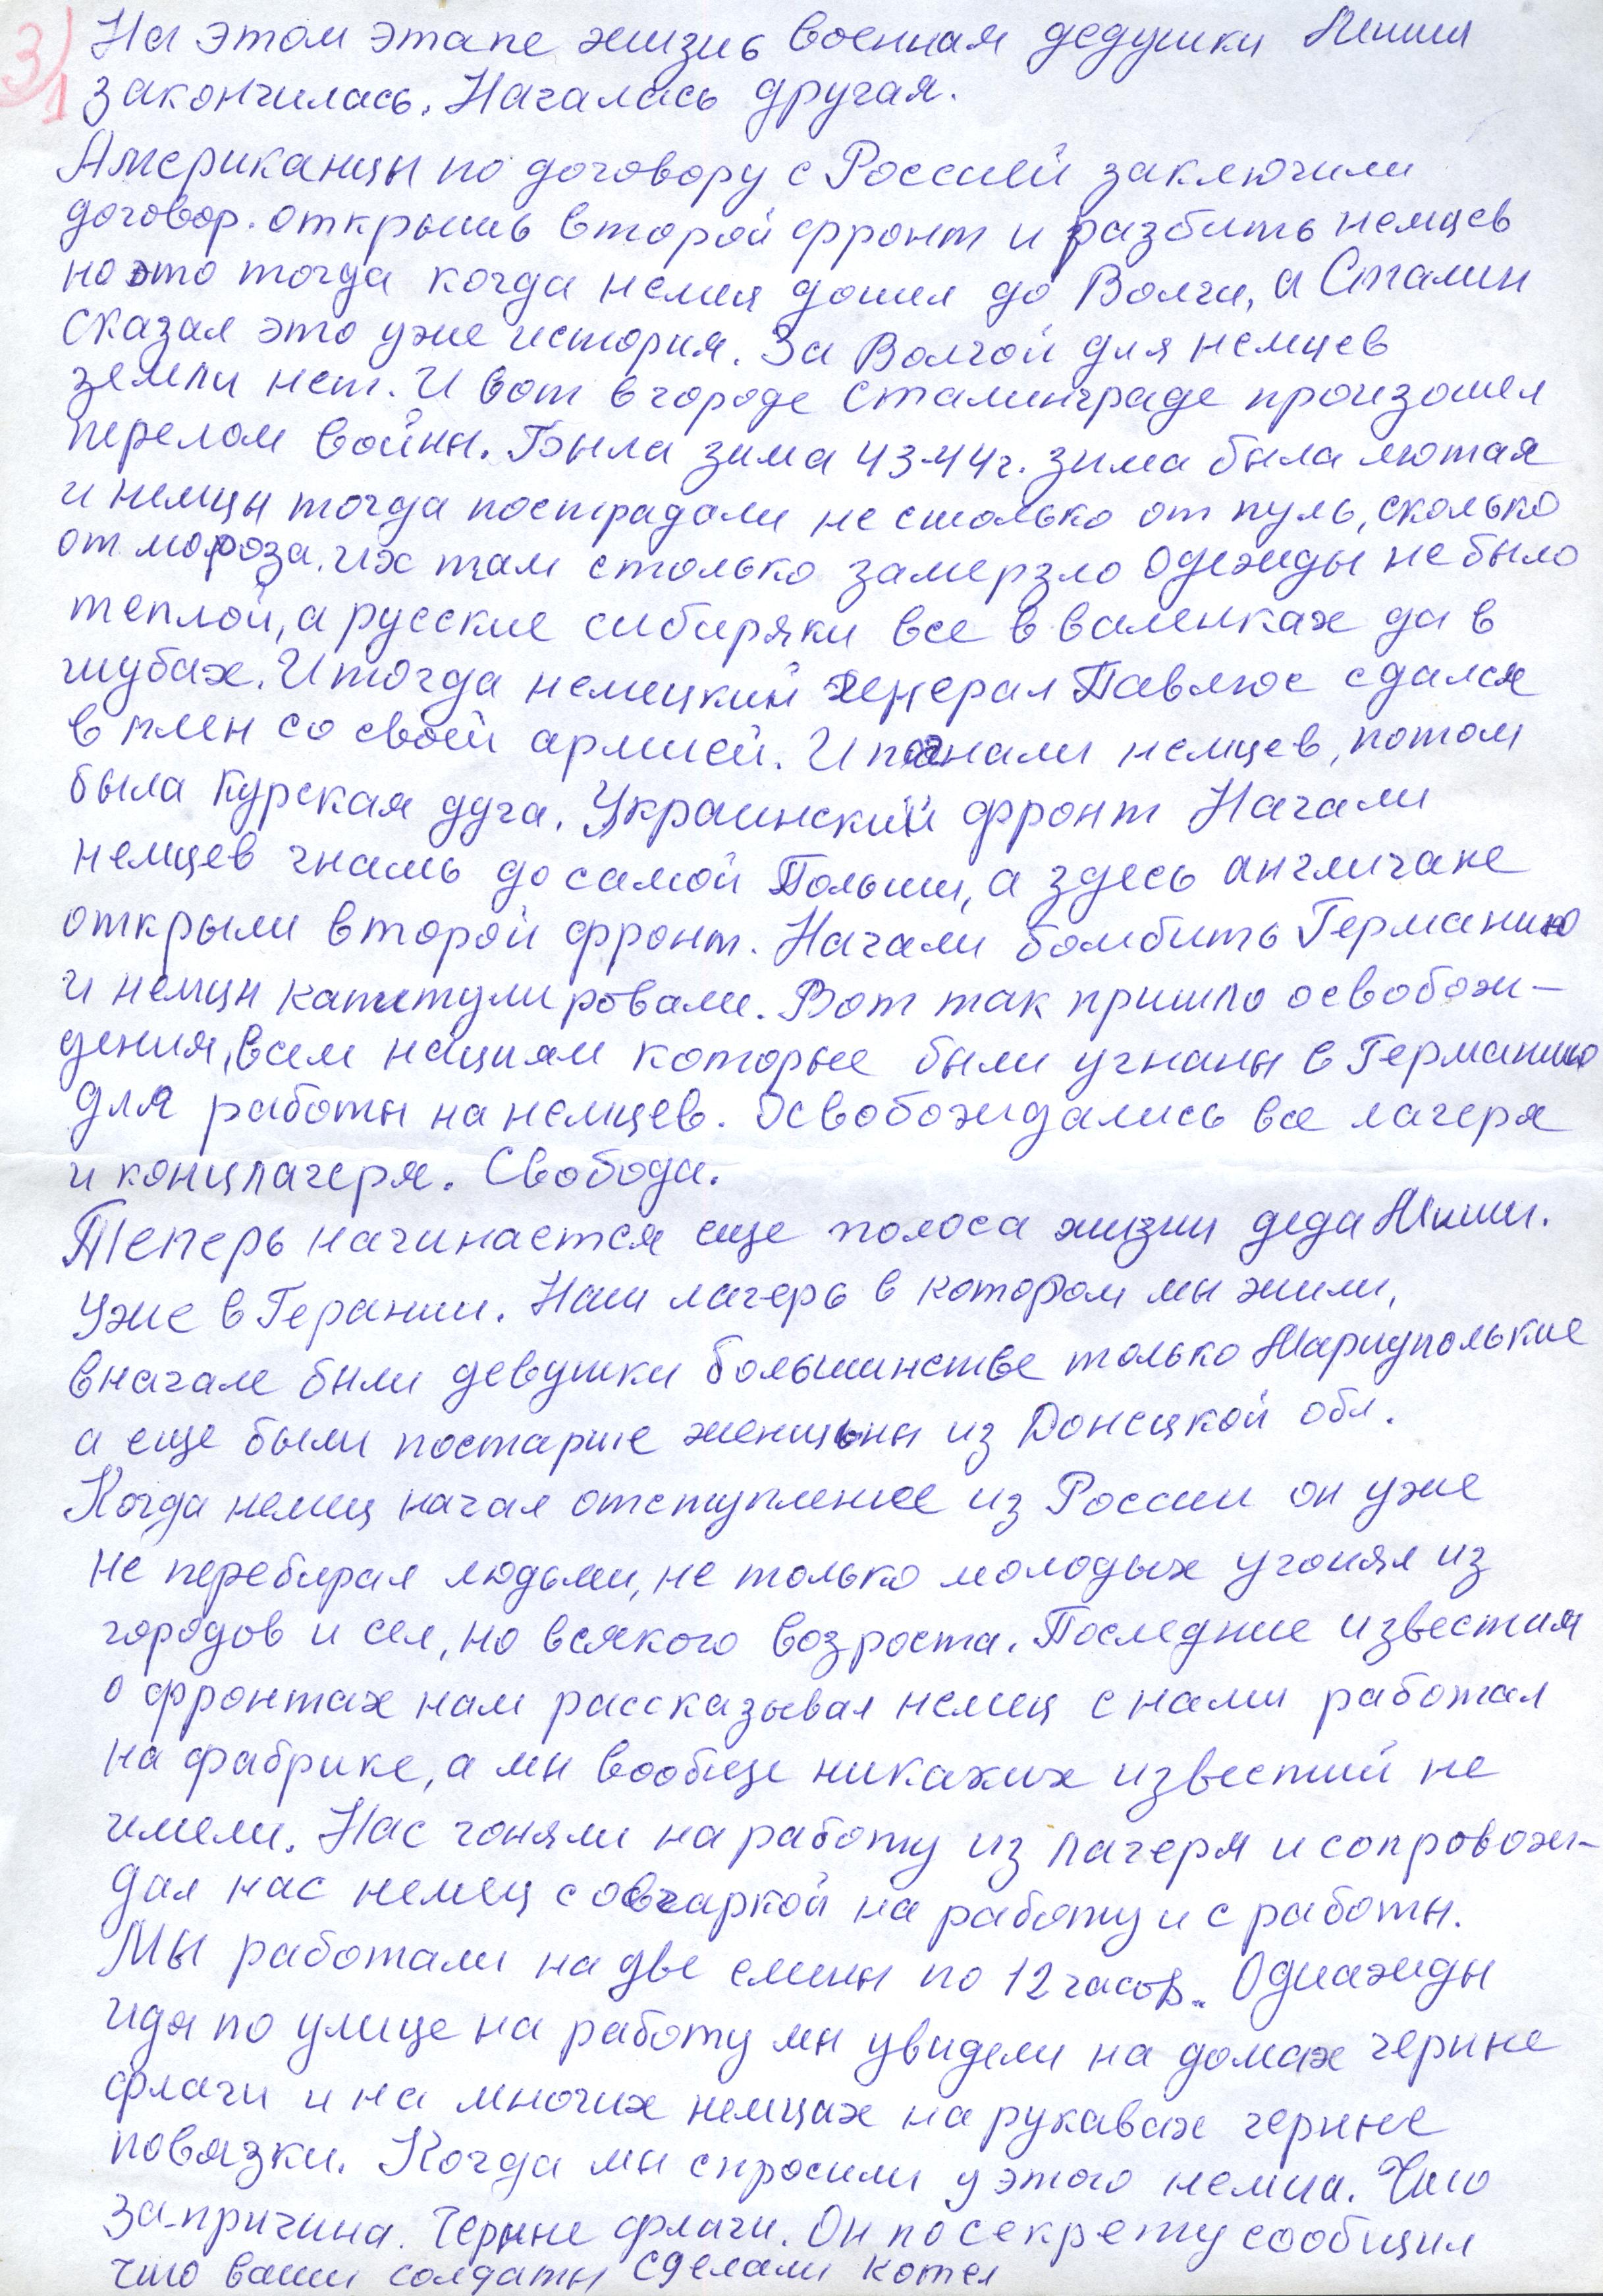 3)
1
На этом этапе жизнь военная дедушки Миши
закончилась. Началась другая.
Американцы по договору с Россией заключили
договор. открыть второй фронт и разбить немцев
но это тогда когда немец дошел до Волги, а Сталин
сказал это уже история. За Волгой для немцев
земли нет. И вот в городе Сталинграде произошел
перелом войны. Была зима 43-44г. зима была лютая
и немцы тогда пострадали не столько от пуль, сколько
от мороза. их там столько замерзло одежды не было
теплой, а русские сибиряки все в валенках да в
шубах. И тогда немецкий генерал Павлюс сдался
в плен со своей армией. И погнали немцев, потом
была Курская дуга. Украинский фронт Начали
немцев гнать до самой Польши, а здесь англичане
открыли второй фронт. Начали бомбить Германию
и немцы капитулировали. Вот так пришло освобож-
дения, всем нациям которые были угнаны в Германию
для работы на немцев. Освобождались все лагеря
и концлагеря. Свобода.
Теперь начинается еще полоса жизни деда Миши.
Уже в Герании. Наш лагерь в котором мы жили,
вначале были девушки большинстве только Мариупольские
а еще были постарше женщины из Донецкой обл.
Когда немец начал отступление из России он уже
не перебирал людьми, не только молодых угонял из
городов и сел, но всякого возроста. Последние известия
о фронтах нам рассказывал немец с нами работал
на фабрике, а мы вообще никаких известий не
имели. Нас гоняли на работу из лагеря и сопровож-
дал нас немец с овчаркой на работу и с работы.
Мы работали на две смены по 12 часов. Однажды
идя по улице на работу мы увидели на домах черные
флаги и на многих немцах на рукавах черные
повязки. Когда мы спросили у этого немца. Что
за-причина. Черные флаги. Он по секрету сообщил
что ваши солдаты сделали котел